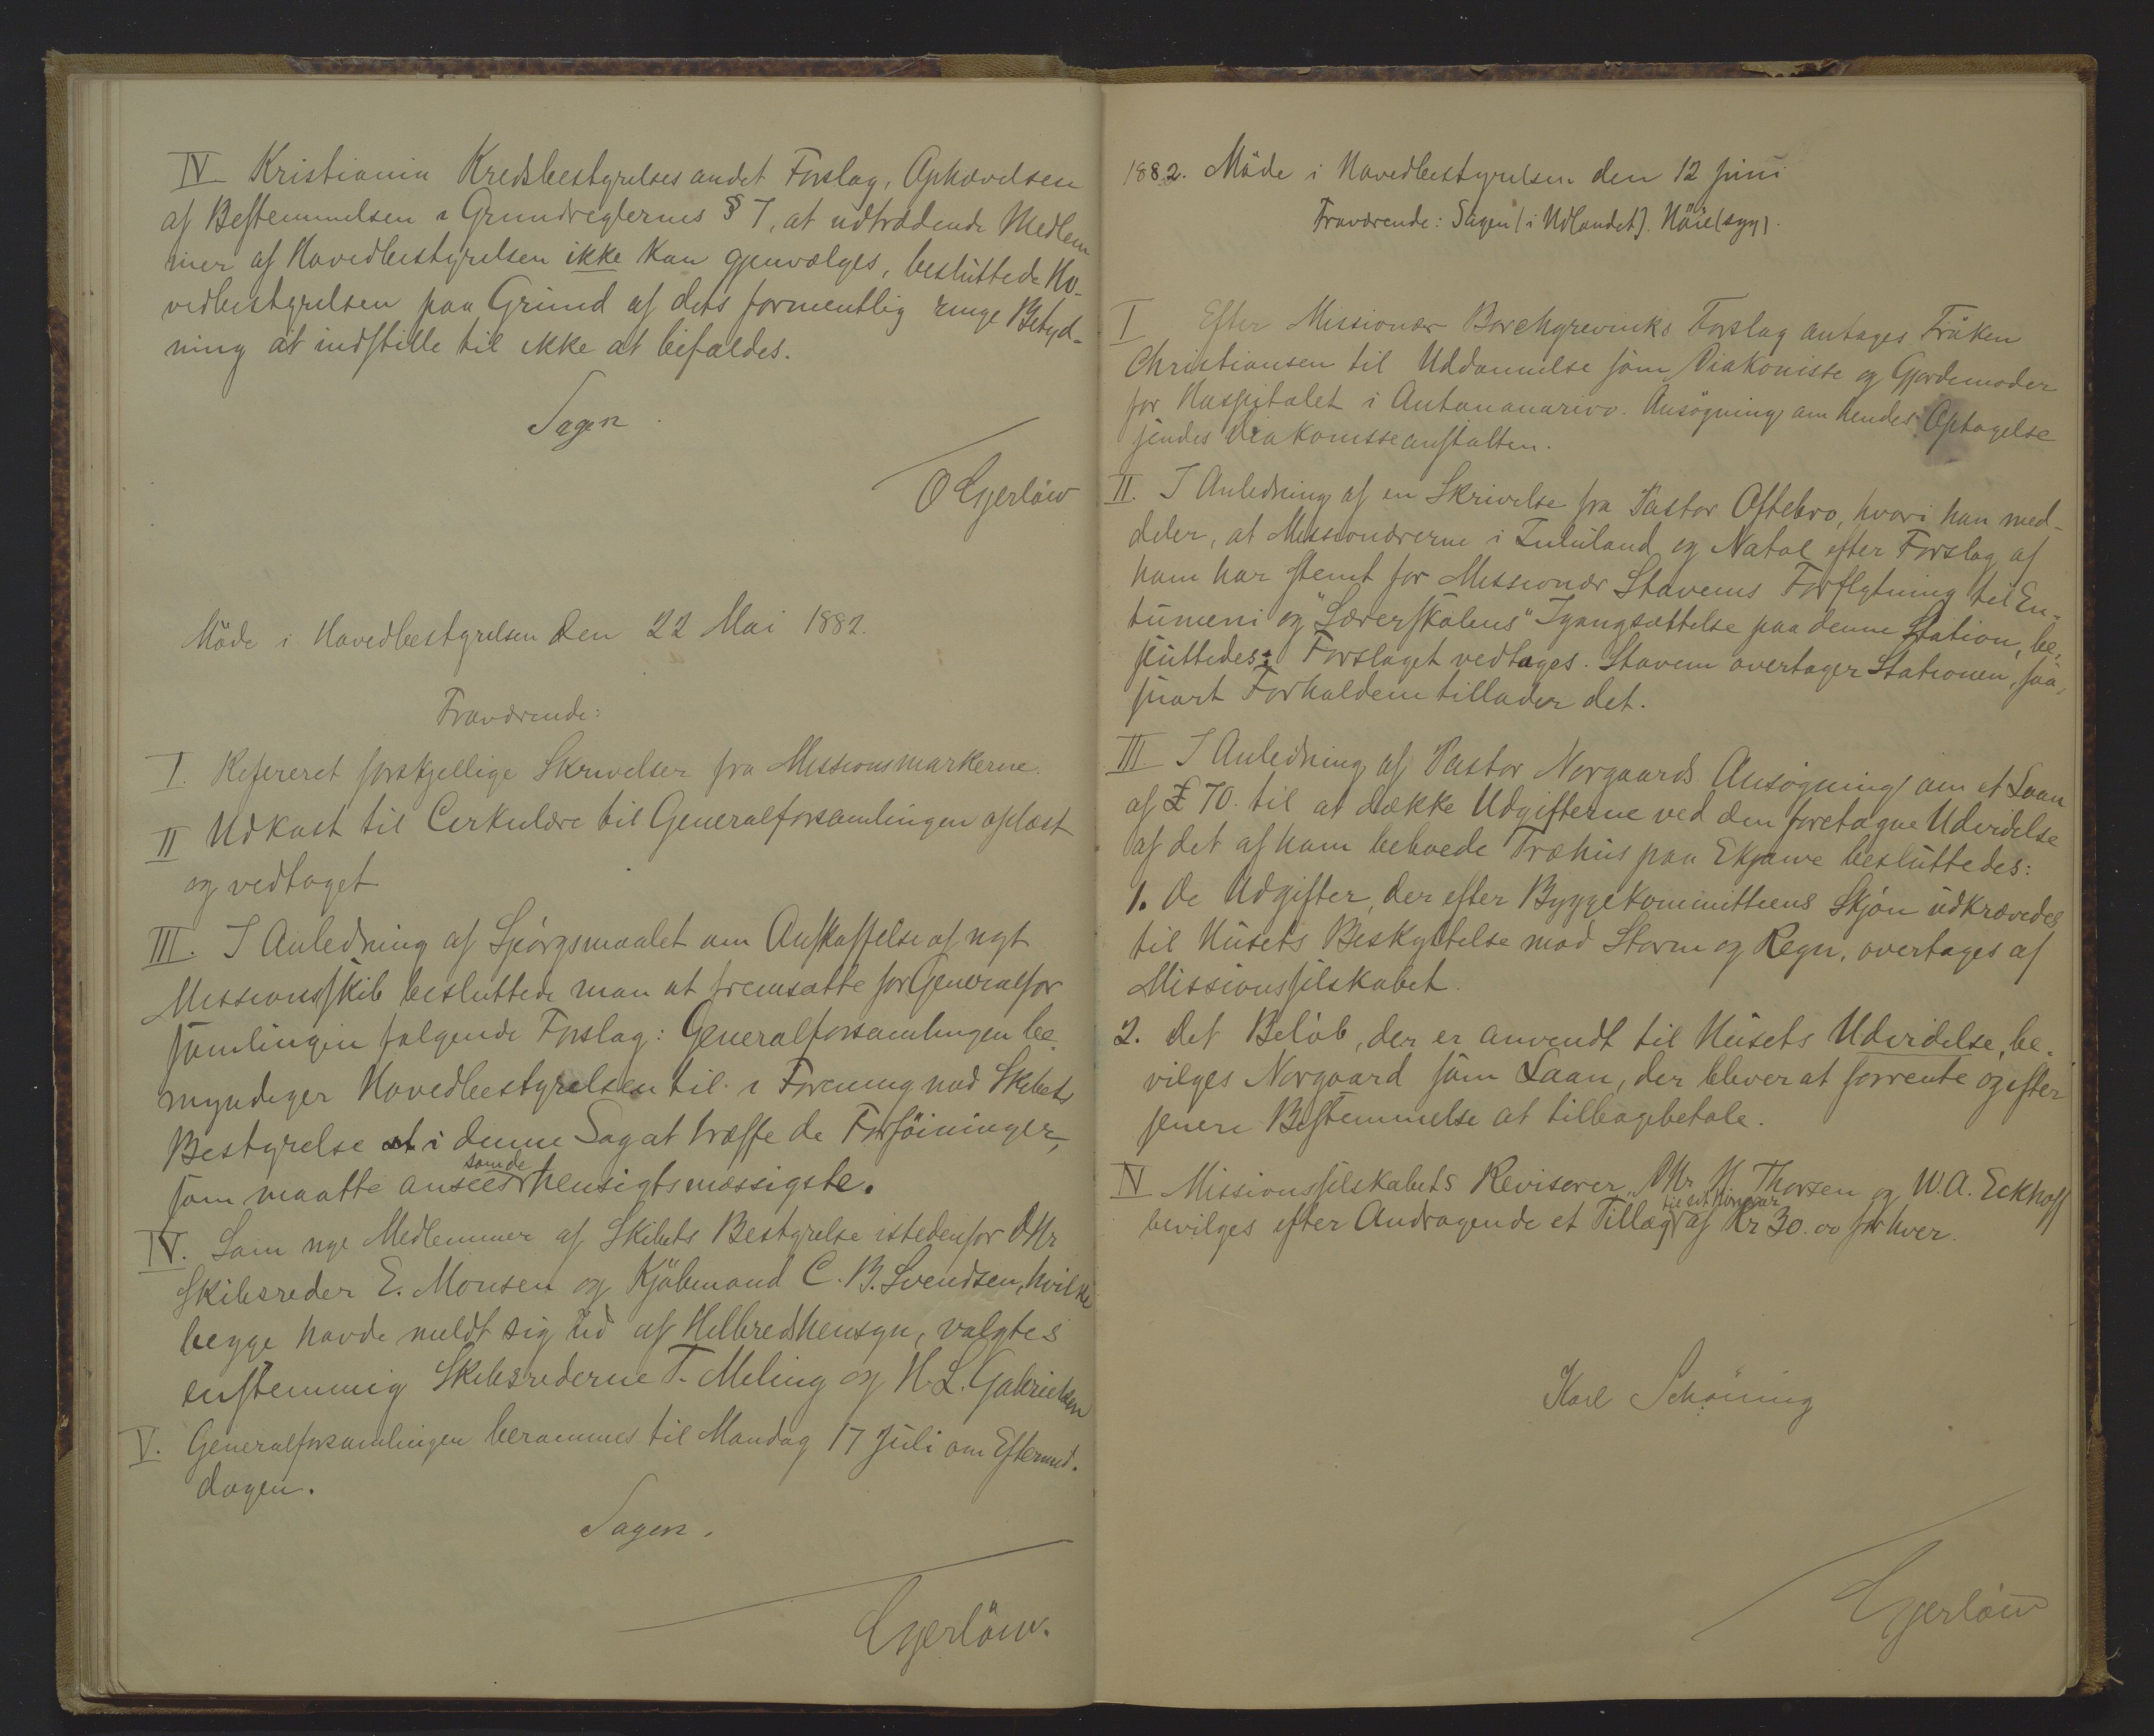 IV Kristiania Kredsbestyrelses andet Forslag, Ophævelsen
af Bestemmelsen i Grundreglernes § 7, at udtrædende Medlem
mer af Hovedbestyrelsen ikke kan gjenvælges, besluttede Ho-
vedbestyrelsen paa Grund af dets formentlig ringe Betyd-
ning at indstille til ikke at bifaldes.
Sagen.
O Gjerløw
Möde i Hovedbestyrelsen den 22 Mai 1882.
Fraværende:
I. Refereret forskjellige Skrivelser fra Missionsmarkerne.
II Udkast til Cirkulære til Generalforsamlingen oplæst
og vedtaget
III. I Anledning af Spörgsmaalet om Anskaffelse af nyt
Missionsskib besluttede man at fremsætte for Generalfor
samlingen følgende Forslag: Generalforsamlingen be-
myndiger Hovedbestyrelsen til i Forening med Skibets
Bestyrelse at i denne Sag at træffe de Forföininger,
som maatte ansees som de hensigtsmæssigste.
IV. Som nye Medlemmer af Skibets Bestyrelse istedenfor DHr
Skibsreder E. Monsen og Kjöbmand C. B. Svendsen, hvilke
begge havde meldt sig ud af Helbredshensyn, valgtes
enstemmig Skibsrederne T. Meling og H. L. Gabrielsen
V. Generalforsamlingen berammes til Mandag 17 Juli om Eftermid-
dagen.
Sagen.
Gjerlöw.
1882. Möde i Hovedbestyrelsen den 12 Juni
Fraværende: Sagen (i Udlandet). Höie (syg).
I Efter Missionær Borchgrevinks Forslag antages Fröken
Christiansen til Uddannelse som Diakonisse og Gjordemoder
for Hospitalet i Antananarivo. Ansögning om hendes Optagelse
sendes Diakonisseanstalten.
II. I Anledning af en Skrivelse fra Pastor Oftebro, hvori han med-
deler, at Missionærerne i Zululand og Natal efter Forslag af
ham har stemt for Missionær Stavems Forflytning til En-
tumeni og "Lærerskolens" Igangsættelse paa denne Station, be-
sluttedes: Forslaget vedtages. Stavem overtager Stationen, saa-
snart Forholdene tillader det.
III I Anledning af Pastor Norgaards Ansögning om et Laan
af £ 70. til at dække Udgifterne ved den foretagne Udvidelse
af det af ham beboede Træhus paa Ekjowe besluttedes:
1. De Udgifter, der efter Byggekommitteens Skjön udkrævedes
til Husets Beskyttelse mod Storm og Regn, overtages af
Missionsselskabet.
2. Det Belöb, der er anvendt til Husets Udvidelse, be-
vilges Norgaard som Laan, der bliver at forrente og efter
senere Bestemmelse at tilbagebetale.
IV Missionsselskabets Revisorer, DHr Thorsen og W. A. Eckhoff
bevilges efter Andragende et Tillæg af Kr 30.00 for hver.
Karl Schöning
Gjerlöw